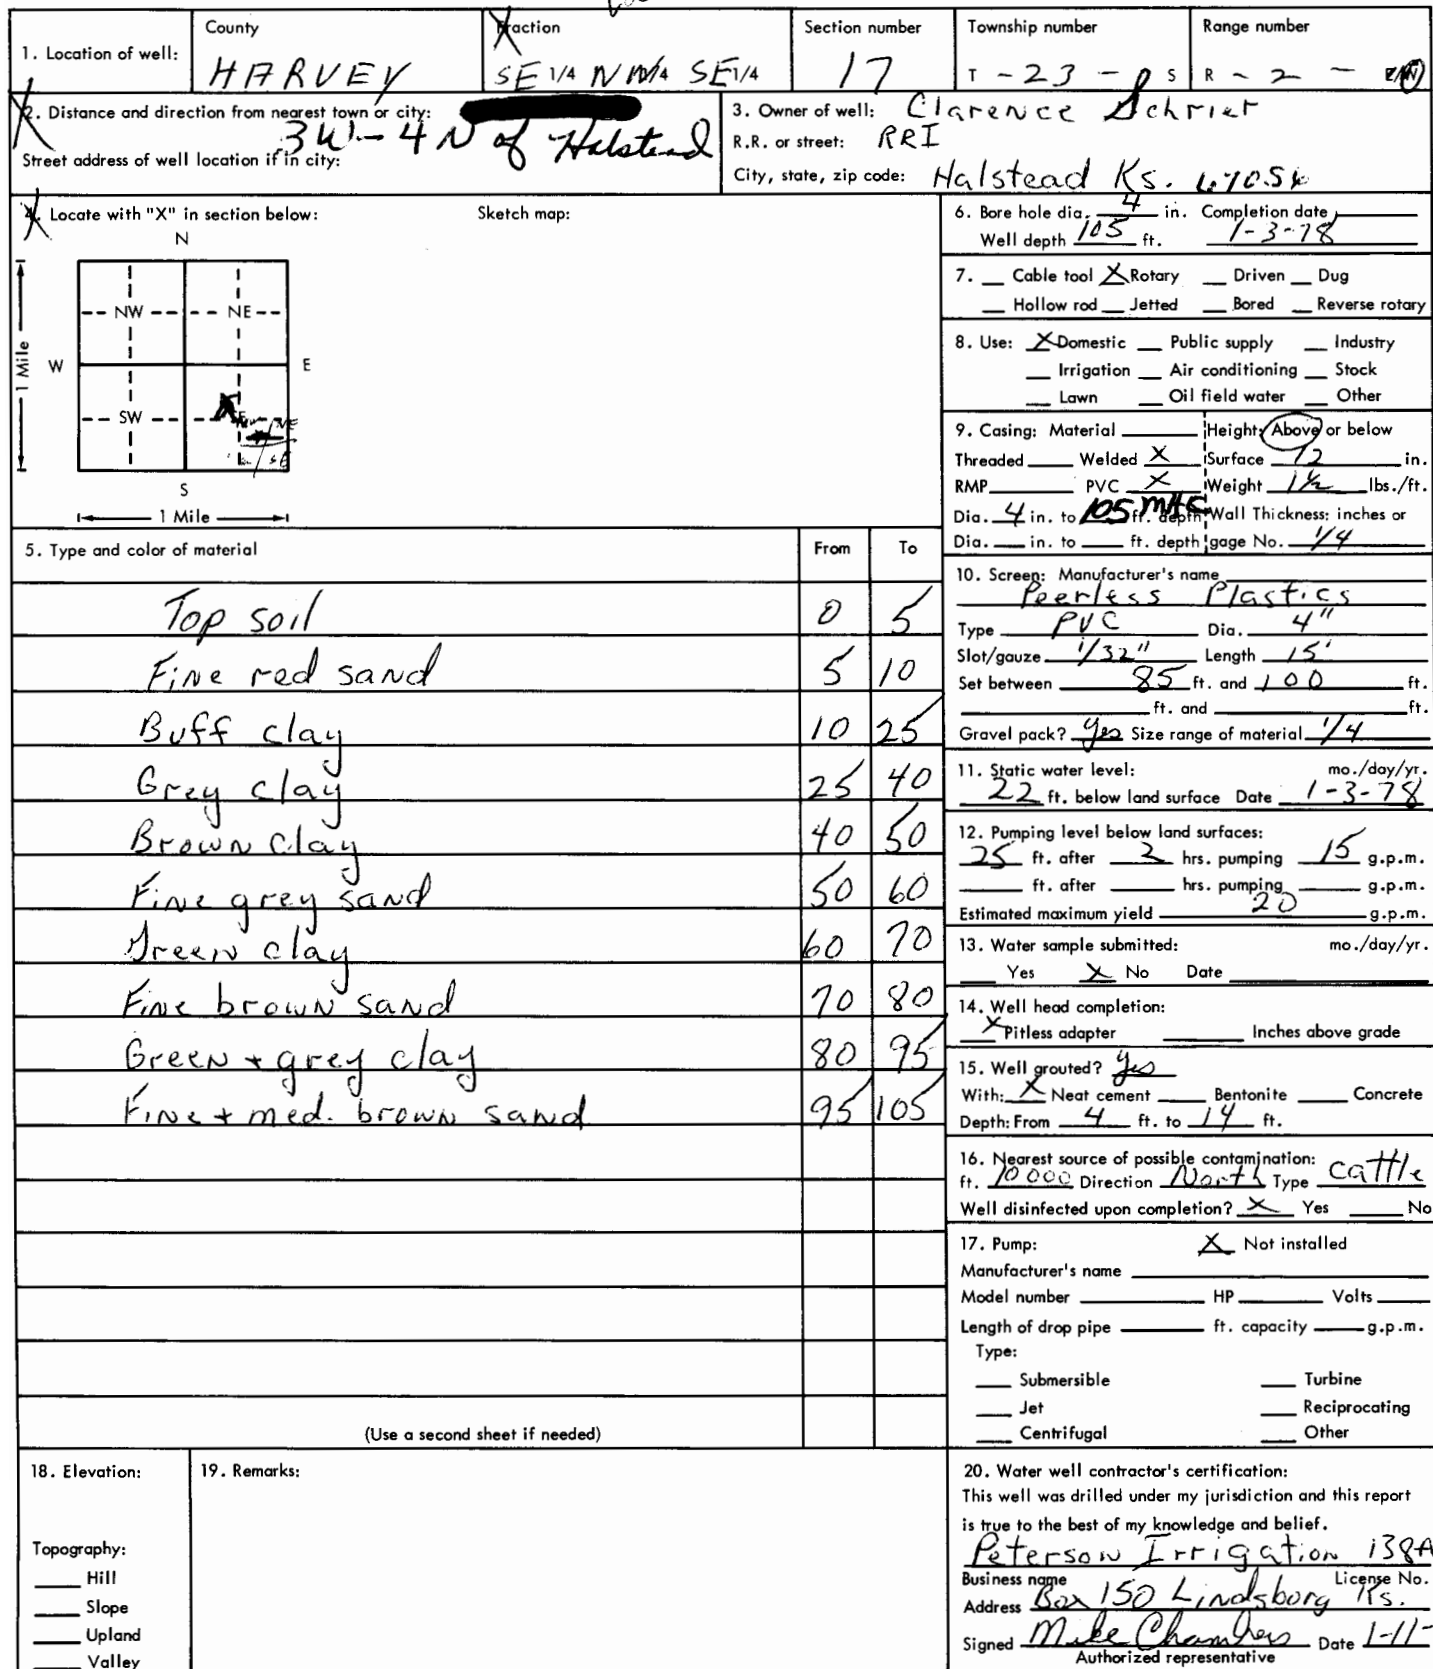 County
Fraction
Section number
Township number
Range number
1. Location of well:
HARVEY
SE 1/4 NW 1/4 SE 1/4
17
T - 23 - S
R - 2 - E/W
2. Distance and direction from nearest town or city:
3W - 4N of Halstead
Street address of well location if in city:
3. Owner of well: Clarence Schrier
R.R. or street: RR1
City, state, zip code: Halstead Ks.
4. Locate with "X" in section below:
Sketch map:
N
NW NE
W E
1 Mile
SW
S
1 Mile
5. Type and color of material From To
Top soil 0 5
Fine red sand 5 10
Buff clay 10 25
Grey clay 25 40
Brown clay 40 50
Fine grey sand 50 60
Green clay 60 70
Fine brown sand 70 80
Green + grey clay 80 95
Fine + med. brown sand 95 105
(Use a second sheet if needed)
6. Bore hole dia. 4 in. Completion date
Well depth 105 ft. 1-3-78
7. Cable tool X Rotary Driven Dug
Hollow rod Jetted Bored Reverse rotary
8. Use: X Domestic Public supply Industry
Irrigation Air conditioning Stock
Lawn Oil field water Other
9. Casing: Material Height: Above or below
Threaded Welded X Surface 12 in.
RMP PVC X Weight 1 1/2 lbs./ft.
Dia. 4 in. to 105 ft. depth Wall Thickness: inches or
Dia. in. to ft. depth gage No. 1/4
10. Screen: Manufacturer's name
Peerless Plastics
Type PVC Dia. 4"
Slot/gauze 1/32" Length 15'
Set between 85 ft. and 100 ft.
ft. and ft.
Gravel pack? yes Size range of material 1/4
11. Static water level: mo./day/yr.
22 ft. below land surface Date 1-3-78
12. Pumping level below land surfaces:
25 ft. after 2 hrs. pumping 15 g.p.m.
ft. after hrs. pumping g.p.m.
Estimated maximum yield 20 g.p.m.
13. Water sample submitted: mo./day/yr.
Yes X No Date
14. Well head completion:
X Pitless adapter Inches above grade
15. Well grouted? yes
With: X Neat cement Bentonite Concrete
Depth: From 4 ft. to 14 ft.
16. Nearest source of possible contamination:
ft. 10000 Direction North Type cattle
Well disinfected upon completion? X Yes No
17. Pump: X Not installed
Manufacturer's name
Model number HP Volts
Length of drop pipe ft. capacity g.p.m.
Type:
Submersible Turbine
Jet Reciprocating
Centrifugal Other
18. Elevation:
Topography:
Hill
Slope
Upland
Valley
19. Remarks:
20. Water well contractor's certification:
This well was drilled under my jurisdiction and this report
is true to the best of my knowledge and belief.
Peterson Irrigation 138A
Business name License No.
Address Box 150 Lindsborg Ks.
Signed Mike Chambers Date 1-11-
Authorized representative